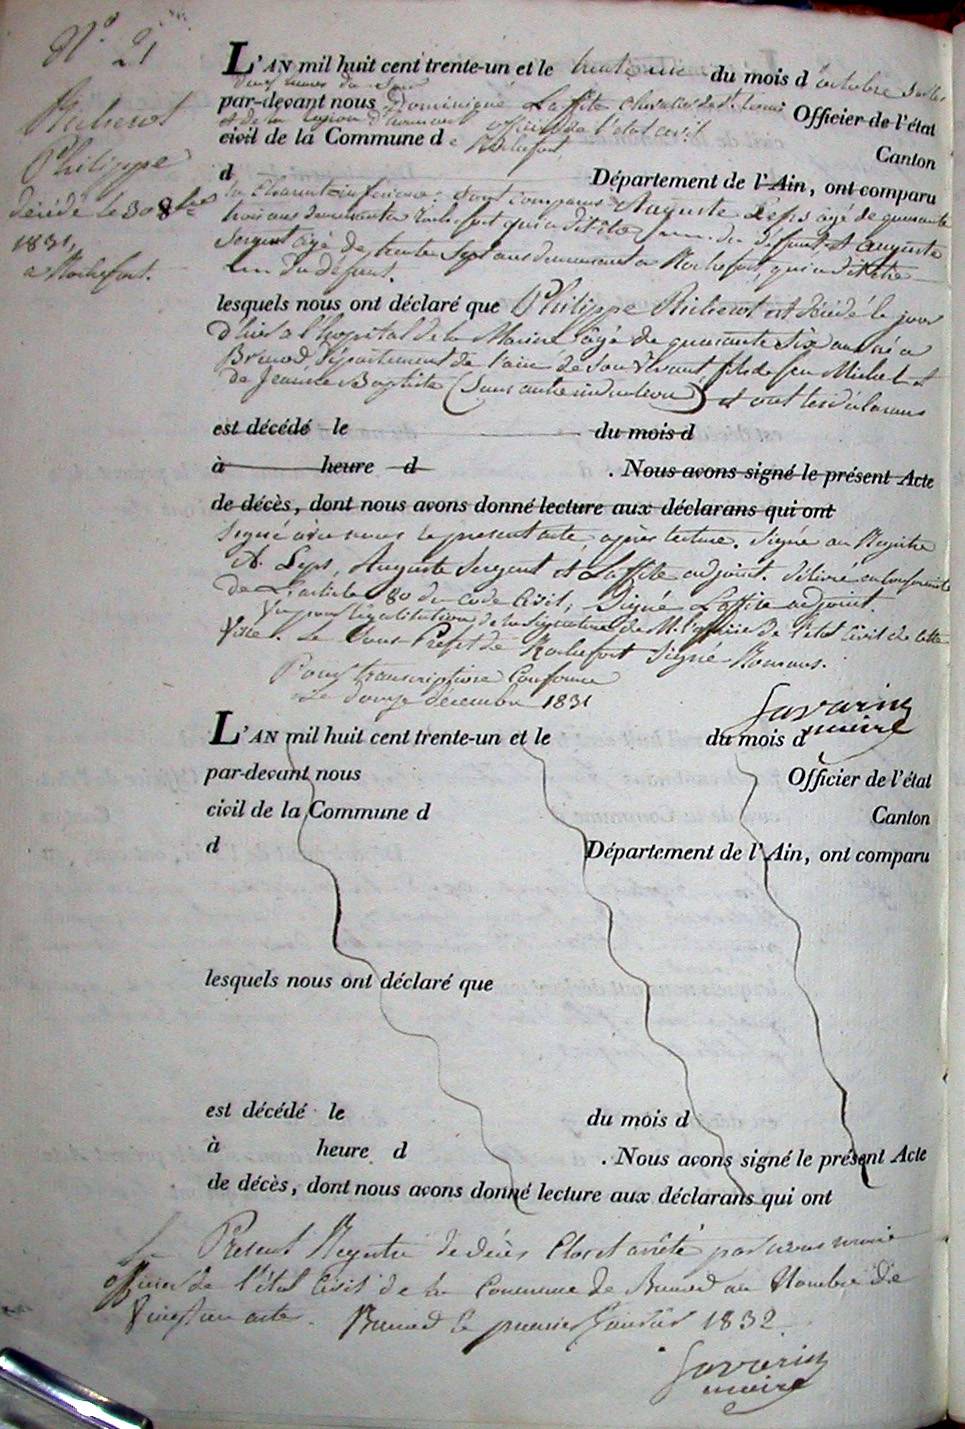 N° 21
Richerot
Philippe
décédé le 30 8bre
1831,
a Rochefort.
L'AN mil huit cent trente-un et le trente un du mois d'octobre sur les
deux heures du soir
par-devant nous Dominique Laffite chevalier de St Louis Officier de l'état
et de la légion d'honneur officier de l'état civil
civil de la Commune de Rochefort Canton
d Département de l'Ain, ont comparu
la Charente inférieure: sont comparus Auguste Leps âgé de quarante
trois ans demeurant a Rochefort qui a dit être du défunt, et auguste
Sergent âgé de trente sept ans demeurant a Rochefort, qui a dit être
du défunt.
lesquels nous ont déclaré que Philippe Richerot est décédé le jour
d'hier a l'hopital de la Marine âgé de quarante six ans né a
Brenod Département de l'ain de son vivant fils de feu Michel et
de Jeanne Baptiste (Sans autre indication) et ont les déclarans
est décédé le du mois d
à heure d . Nous avons signé le présent Acte
de décès, dont nous avons donné lecture aux déclarans qui ont
Signé avec nous le present acte après lecture. Signé au Registre
A. Leps, Auguste Sergent et Laffite adjoint. délivré en conformité
de L'article 80 du code Civil; Signé Laffite adjoint.
Vu pour légalisation de la Signature de M. l'officier de l'état Civil de cette
Ville. Le Sous Préfet de Rochefort Signé Romans.
Pour transcription Conforme
Le douze décembre 1831
Savarin
maire
L'AN mil huit cent trente-un et le du mois d
par-devant nous Officier de l'état
civil de la Commune d Canton
d Département de l'Ain, ont comparu
lesquels nous ont déclaré que
est décédé le du mois d
à heure d . Nous avons signé le présent Acte
de décès, dont nous avons donné lecture aux déclarans qui ont
Le Present Registre de décès Clos et arrêté par nous maire
officier de l'état Civil de la Commune de Brenod au Nombre de
Vingt un acte. Brenod le premier Janvier 1832
Savarin
maire